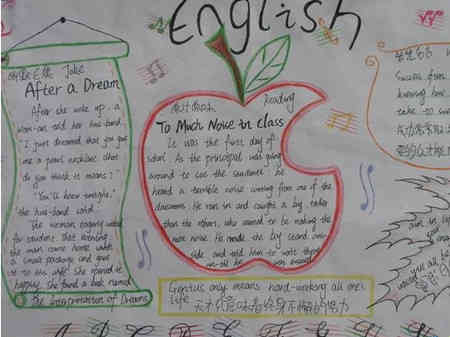 English
Joke
After a Dream
After she woke up, a
woman told her husband,
"I just dreamed that you gave
me a pearl necklace. What
do you think it means?"
"You'll know tonight,"
the husband said.
The woman eagerly waited
for sundown. That evening
the man came home with
a small package and gave
it to his wife. She opened it
happily. She found a book named
The Interpretation of Dreams
Reading
To Much Noise in Class
It was the first day of
school. As the principal was going
around to see the students he
heard a terrible noise coming from one of the
classrooms. He ran in and caught a boy, taller
than the others, who seemed to be making the
most noise. He made the boy stand
side and told him to wait there
Genius only means hard-working all one's
life
天才只意味着终身不懈的努力
Success
knowing how
take
成功常常